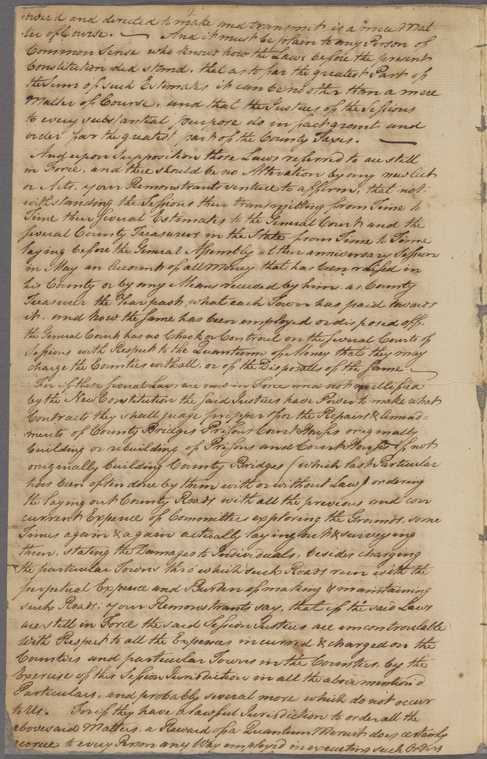 and directed to make and transmit is a mere Mat
ter of Course. — And it must be plain to any Person of
Common Sense who knows how the Laws before the present
Constitution did stand, that as to far the greatest Part of
the Sum of such Estimates it can be no other than a mere
Matter of Course, and that the Justices of the Sessions
to every substantial purpose do in fact grant and
order far the greatest part of the County Taxes. —
And upon Supposition those Laws referred to are still
in Force, and there should be no Alteration by any new Act
or Acts, your Remonstrants venture to affirm, that not
withstanding the Sessions their transmitting from Time to
Time their several Estimates to the General Court and the
several County Treasurers in the State from Time to Time
laying before the General Assembly at their anniversary Session
in May an Account of all Money that has been raised in
his County or by any Means received by him as County
Treasurer the Year past, what each Town has paid towards
it, and how the same has been employed or disposed off,
the General Court has no Check or Controul on the several Courts of
Sessions with Respect to the Quantum of Money that they may
charge the Counties withall, or of the Disposals of the same —
For if these several Laws are now in Force and not nullified
by the New Constitution the said Justices have Power to make what
Contracts they shall judge propper for the Repairs & amend-
ments of County Bridges Prisons Court Houses originally
building or rebuilding of Prisons and Court Houses if not
originally building County Bridges (which last Particular
has been often done by them with or without Law) ordering
the laying out County Roads with all the previous and con
current Expence of Committees exploring the Grounds, some
Times again & again actually laying out & surveying
them, stating the Damages to Individuals, besides charging
the particular Towns thro which such Roads run with the
perpetual Expence and Burden of making & maintaining
such Roads; your Remonstrants say, that if the said Laws
are still in Force the said Session Justices are uncontroulable
with Respect to all the Expences incurred & charged on the
Counties and particular Towns in the Counties, by the
Exercise of this Session Jurisdiction in all the above mention'd
Particulars, and probably several more which do not occur
to Us. For if they have a lawful Jurisdiction to order all the
aboveward Matters, a Reward of a Quantum Meruit does certainly
accrue to every Person any Way employed in executing such Orders